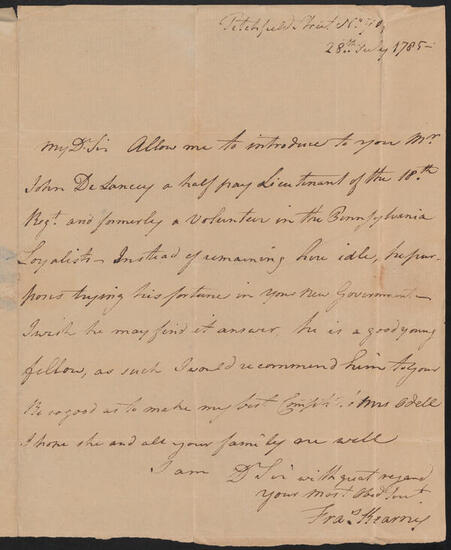 Titchfield Street No.
28th July 1785 –
My Dr. Sir Allow me to introduce to you Mr.
John DeLancey a half pay Lieutenant of the 18th
Regt. and formerly a Volunteer in the Pennsylvania
Loyalists – Instead of remaining here idle, he pur-
poses trying his fortune in your New Government –
I wish he may find it answer, he is a good young
fellow, as such I would recommend him to your
Be so good as to make my best Complts. to Mrs Odell
I hope she and all your family are well
I am Dr Sir with great regard
your most Obedt. Servt.
Fras. Kearney